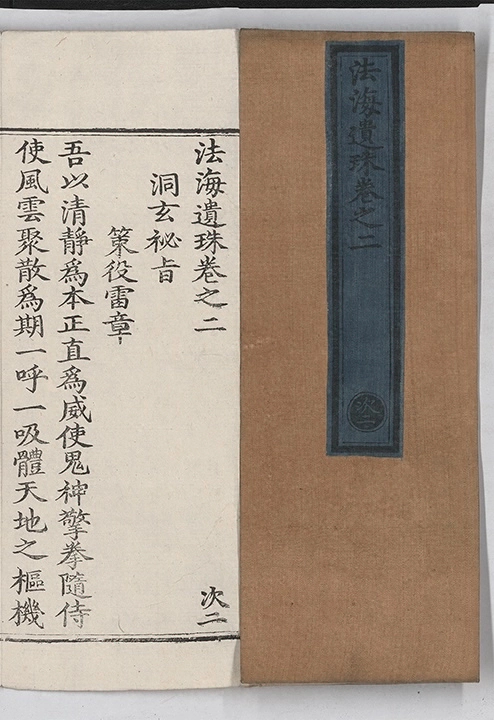 法海遺珠卷之二
次二
法海遺珠卷之二
次二
洞玄祕旨
策役雷章
吾以清靜爲本正直爲威使鬼神擎拳隨侍
使風雲聚散爲期一呼一吸體天地之樞機